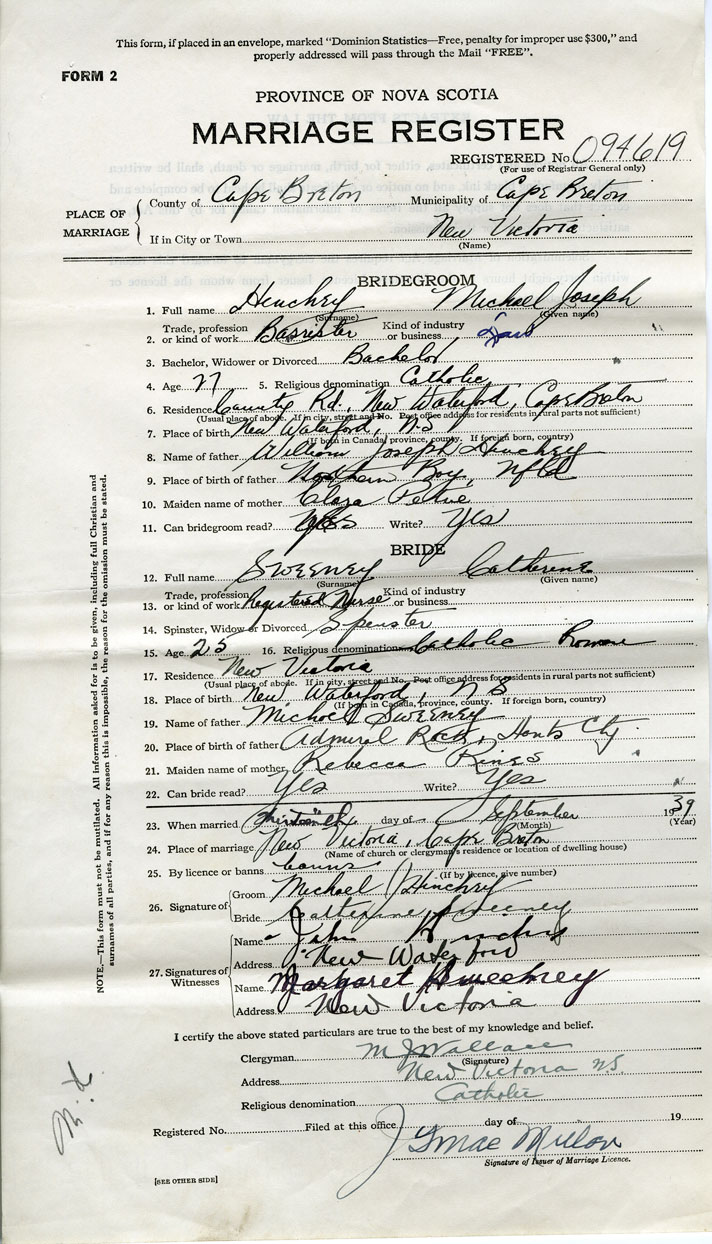 This form, if placed in an envelope, marked "Dominion Statistics—Free, penalty for improper use $300," and
properly addressed will pass through the Mail "FREE".
FORM 2
PROVINCE OF NOVA SCOTIA
MARRIAGE REGISTER
REGISTERED No. 094619
(For use of Registrar General only)
PLACE OF MARRIAGE
County of Cape Breton Municipality of Cape Breton
If in City or Town New Victoria
(Name)
BRIDEGROOM
1. Full name Hinchey Michael Joseph
(Surname) (Given name)
2. Trade, profession or kind of work Barrister Kind of industry or business Law
3. Bachelor, Widower or Divorced Bachelor
4. Age 27 5. Religious denomination Catholic
6. Residence County Rd., New Waterford, Cape Breton
(Usual place of abode. If in city, street and No. Post office address for residents in rural parts not sufficient)
7. Place of birth New Waterford, NS
(If born in Canada, province, county. If foreign born, country)
8. Name of father William Joseph Hinchey
9. Place of birth of father Northern Bay, Nfld
10. Maiden name of mother Clara
11. Can bridegroom read? Yes Write? Yes
BRIDE
12. Full name Sweeney Catherine
(Surname) (Given name)
13. Trade, profession or kind of work Registered Nurse Kind of industry or business
14. Spinster, Widow or Divorced Spinster
15. Age 25 16. Religious denomination Catholic Roman
17. Residence New Victoria
(Usual place of abode. If in city, street and No. Post office address for residents in rural parts not sufficient)
18. Place of birth New Waterford, NS
(If born in Canada, province, county. If foreign born, country)
19. Name of father Michael Sweeney
20. Place of birth of father Admiral Rock, Hants Cty.
21. Maiden name of mother Rebecca Hines
22. Can bride read? Yes Write? Yes
23. When married day of September 1939
(Month) (Year)
24. Place of marriage New Victoria, Cape Breton
(Name of church or clergyman's residence or location of dwelling house)
25. By licence or banns banns
(If by licence, give number)
26. Signature of
Groom Michael J Hinchey
Bride Catherine Sweeney
27. Signatures of Witnesses
Name John Hinchey
Address New Waterford
Name Margaret Sweeney
Address New Victoria
I certify the above stated particulars are true to the best of my knowledge and belief.
Clergyman M J Wallace
(Signature)
Address New Victoria NS
Religious denomination Catholic
Registered No. Filed at this office day of 19
Signature of Issuer of Marriage Licence.
[SEE OTHER SIDE]
NOTE.—This form must not be mutilated. All information asked for is to be given, including full Christian and
surnames of all parties, and if for any reason this is impossible, the reason for the omission must be stated.